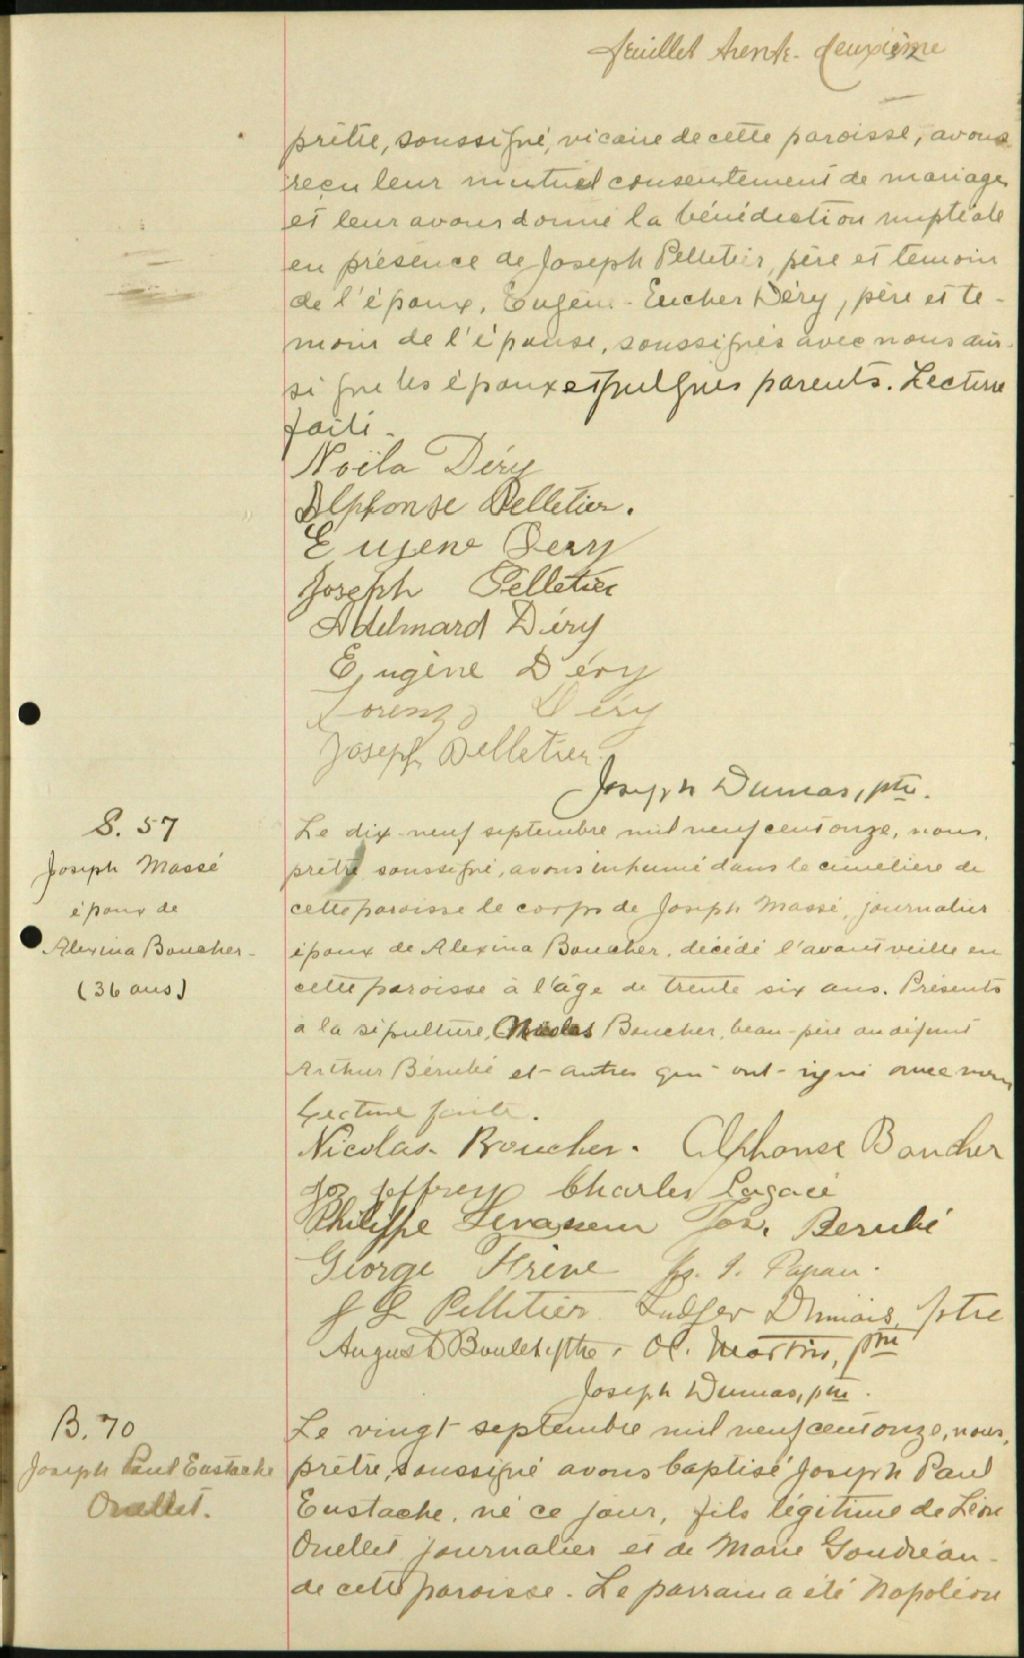 feuillet trente-deuxième
prêtre, soussigné, vicaire de cette paroisse, avons
reçu leur mutuel consentement de mariage
et leur avons donné la bénédiction nuptiale
en présence de Joseph Pelletier, père et temoin
de l'époux, Eugène-Eucher Déry, père et te-
moin de l'épouse, soussignés avec nous ain-
si que les époux et quelques parents. Lecture
faite.
Noëla Déry
Alphonse Pelletier.
Eugene Dery
Joseph Pelletier
Adelmard Déry
Eugène Déry
Lorenzo Déry
Joseph Pelletier
Joseph Dumas, ptre.
S. 57
Joseph Massé
époux de
Alexina Boucher-
(36 ans)
Le dix-neuf septembre mil neuf cent onze, nous,
prêtre soussigné, avons inhumé dans le cimetière de
cette paroisse le corps de Joseph Massé, journalier
époux de Alexina Boucher, décédé l'avant veille en
cette paroisse à l'âge de trente six ans. Présents
à la sépulture, Nicolas Boucher, beau-père au défunt
Arthur Bérubé et autres qui ont signé avec nous
Lecture faite.
Nicolas Boucher. Alphonse Boucher
Joz Jeffrey Charles Lagacé
Philippe Levasseur Jos. Berubé
George Hrène
J L Pelletier Ludger Dumais, ptre
August Boulet, ptre. Martin, ptre
Joseph Dumas, ptre.
B. 70
Joseph Paul Eustache
Ouellet.
Le vingt septembre mil neuf cent onze, nous,
prêtre, soussigné avons baptisé Joseph Paul
Eustache, né ce jour, fils légitime de Léon
Ouellet journalier et de Marie Goudreau-
de cette paroisse. Le parrain a été Napoléon